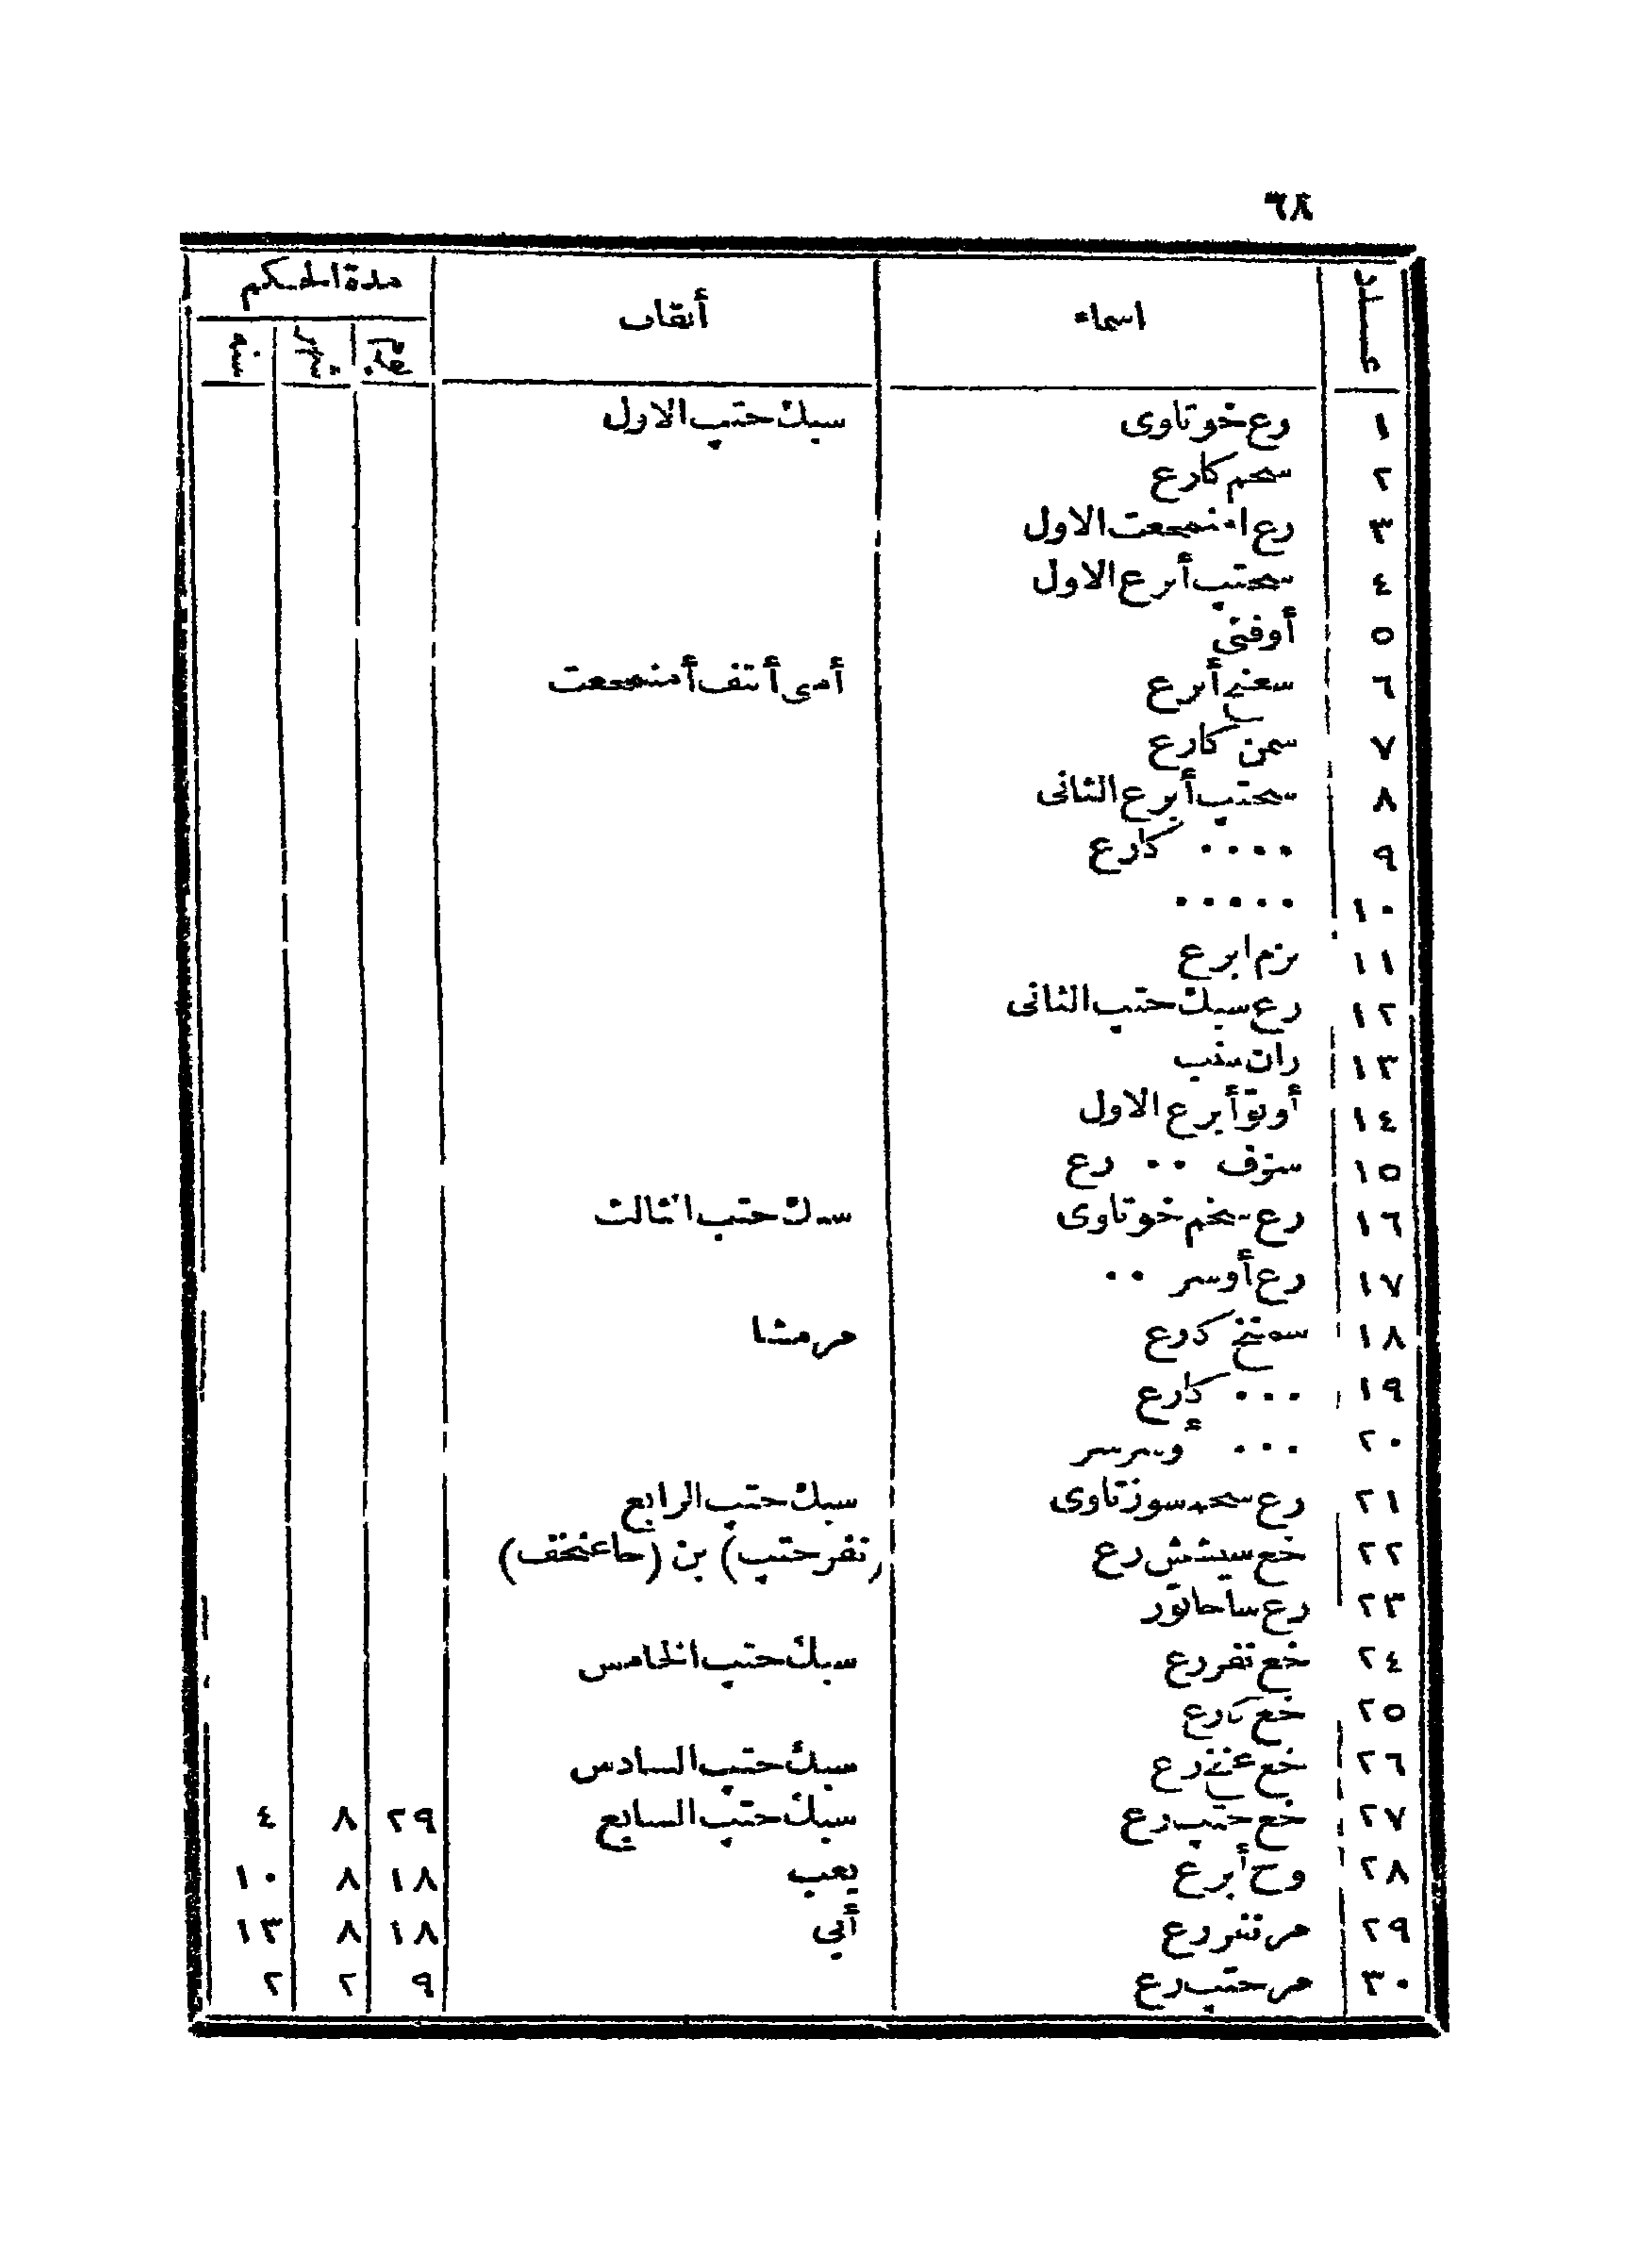 ٦٨
عدد اسماء ألقاب مدة الحكم
سنه
١ رع خوتاوى سبك حتب الاول
٢ سخم كارع
٣ رع امنمحعت الاول
٤ سحتب أبرع الاول
٥ أوفنى
٦ سعنخ أبرع أمى أنتف أمنمحعت
٧ سمن كارع
٨ سحتب أبرع الثانى
٩ ٠٠٠٠ كارع
١٠ ٠٠٠٠٠
١١ نزم ابرع
١٢ رع سبك حتب الثانى
١٣ ران سنب
١٤ أوتو أبرع الاول
١٥ سزف ٠٠ رع
١٦ رع سخم خوتاوى سبك حتب الثالث
١٧ رع أوسر ٠٠
١٨ سمنخ كارع مرمشا
١٩ ٠٠٠ كارع
٢٠ ٠٠٠ أوسرسر
٢١ رع سخم سوزتاوى سبك حتب الرابع
٢٢ خع سيشش رع (نفرحتب) بن (حاعنخف)
٢٣ رع ساحاتور
٢٤ خع نفررع سبك حتب الخامس
٢٥ خع كارع
٢٦ خع عنخ رع سبك حتب السادس
٢٧ خع حتب رع سبك حتب السابع ٢٩ ٨ ٤
٢٨ وح أبرع يعب ١٨ ٨ ١٠
٢٩ مرنفررع أبي ١٨ ٨ ١٣
٣٠ مرحتب رع ٩ ٢ ٢